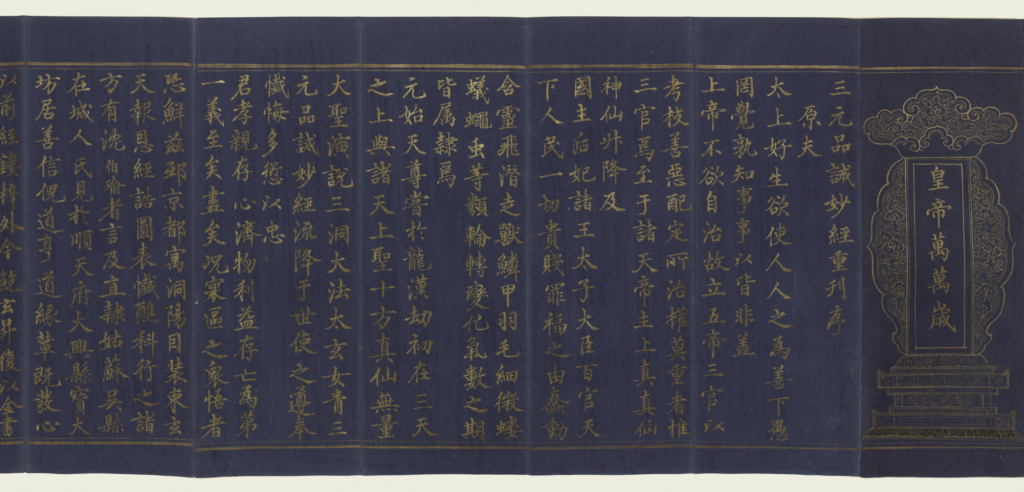 皇帝萬萬歲
三元品誡妙經重刊序
原夫
太上好生欲使人人之為善下愚
罔覺孰知事事以皆非蓋
上帝不欲自治故立五帝三官以
考校善惡配定所治權莫重者惟
三官焉至于諸天帝主上真真仙
神仙升降及
國主后妃諸王太子大臣百官天
下人民一切貴賤罪福之由蠢動
含靈飛潛走獸鱗甲羽毛細微螻
蟻蠅虫等類輪轉變化氣數之期
皆属隸焉
元始天尊嘗於龍漢劫初在三天
之上與諸天上聖十方真仙無量
大聖演說三洞大法太玄女青三
元品誡妙經流降于世使之遵奉
懺悔多愆以忠
君孝親存心濟物利益存亡為第
一義至矣盡矣况寰區之衆悟者
恐鮮茲邳京都寓洞陽目裝東玄
天報恩經誥圓表懺醮科行之諸
方有沈伯愉者言及直隸姑蘇吳縣
在城人民見於順天府大興縣寶大
坊居善信倪道亨道緣輩既發心
以前經鋟梓外今